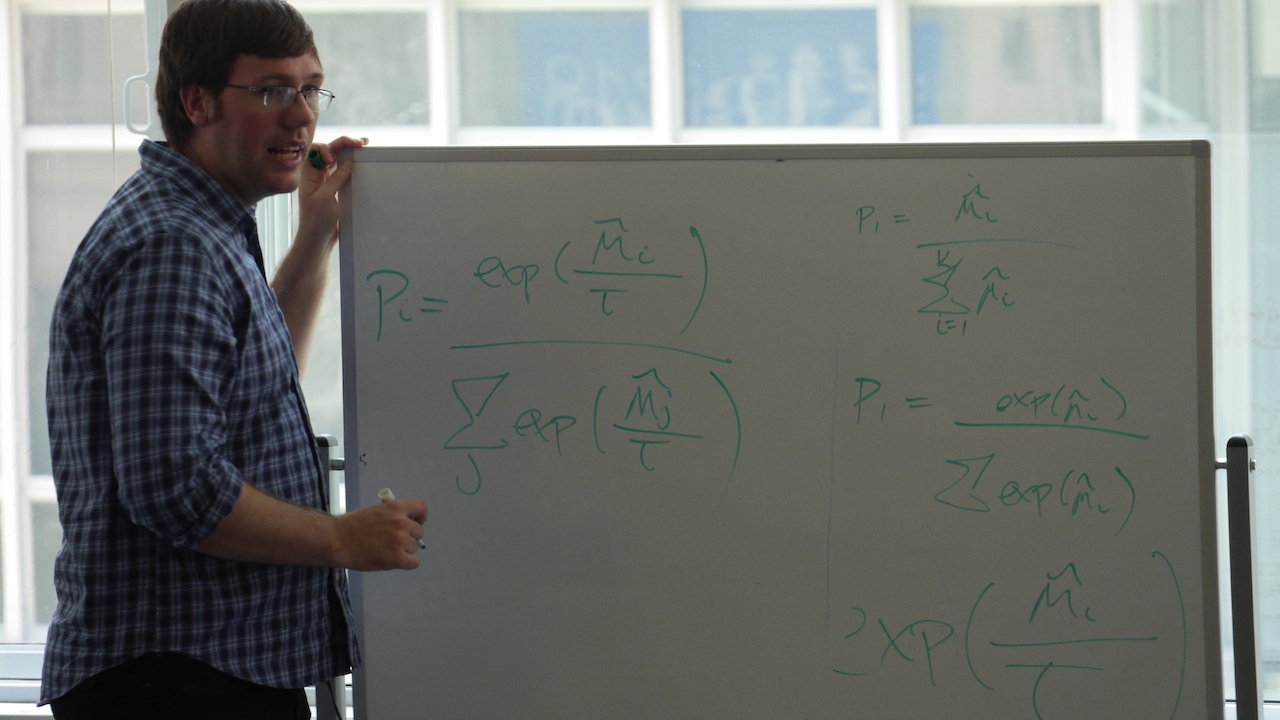 Pi = exp(μ̂i/τ) / Σj exp(μ̂j/τ)
P1 = μ̂i / Σ(i=1)^K μ̂i
P1 = exp(μ̂i) / Σ exp(μ̂i)
exp(μ̂i/τ)